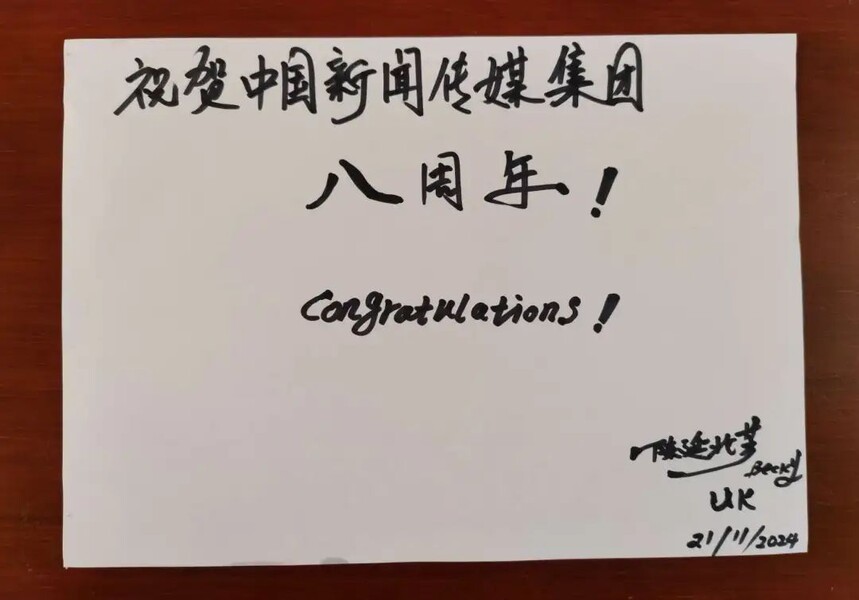 祝贺中国新闻传媒集团
八周年！
Congratulations!
Becky
UK
21/11/2024